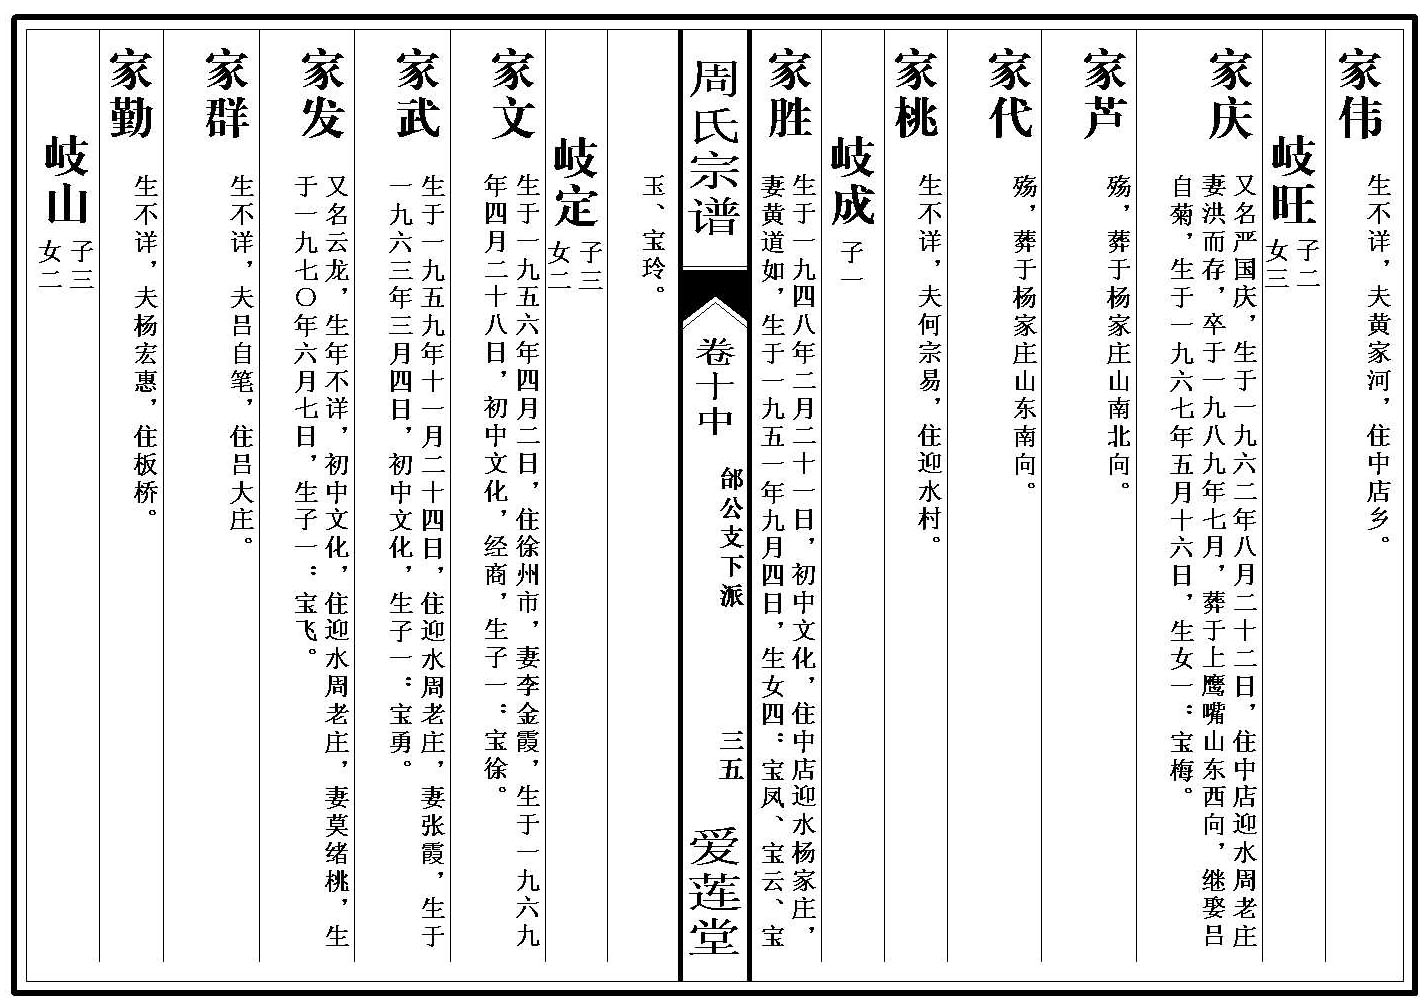 家伟
生不详，夫黄家河，住中店乡。
岐旺
子二
女三
家庆
又名严国庆，生于一九六二年八月二十二日，住中店迎水周老庄
妻洪而存，卒于一九八九年七月，葬于上鹰嘴山东西向，继娶吕
自菊，生于一九六七年五月十六日，生女一：宝梅。
家芦
殇，葬于杨家庄山南北向。
家代
殇，葬于杨家庄山东南向。
家桃
生不详，夫何宗易，住迎水村。
岐成
子一
家胜
生于一九四八年二月二十一日，初中文化，住中店迎水杨家庄，
妻黄道如，生于一九五一年九月四日，生女四：宝凤、宝云、宝
周氏宗谱
卷十中
邰公支下派
三五
爱莲堂
玉、宝玲。
岐定
子三
女二
家文
生于一九五六年四月二日，住徐州市，妻李金霞，生于一九六九
年四月二十八日，初中文化，经商，生子一：宝徐。
家武
生于一九五九年十一月二十四日，住迎水周老庄，妻张霞，生于
一九六三年三月四日，初中文化，生子一：宝勇。
家发
又名云龙，生年不详，初中文化，住迎水周老庄，妻莫绪桃，生
于一九七〇年六月七日，生子一：宝飞。
家群
生不详，夫吕自笔，住吕大庄。
家勤
生不详，夫杨宏惠，住板桥。
岐山
子三
女二